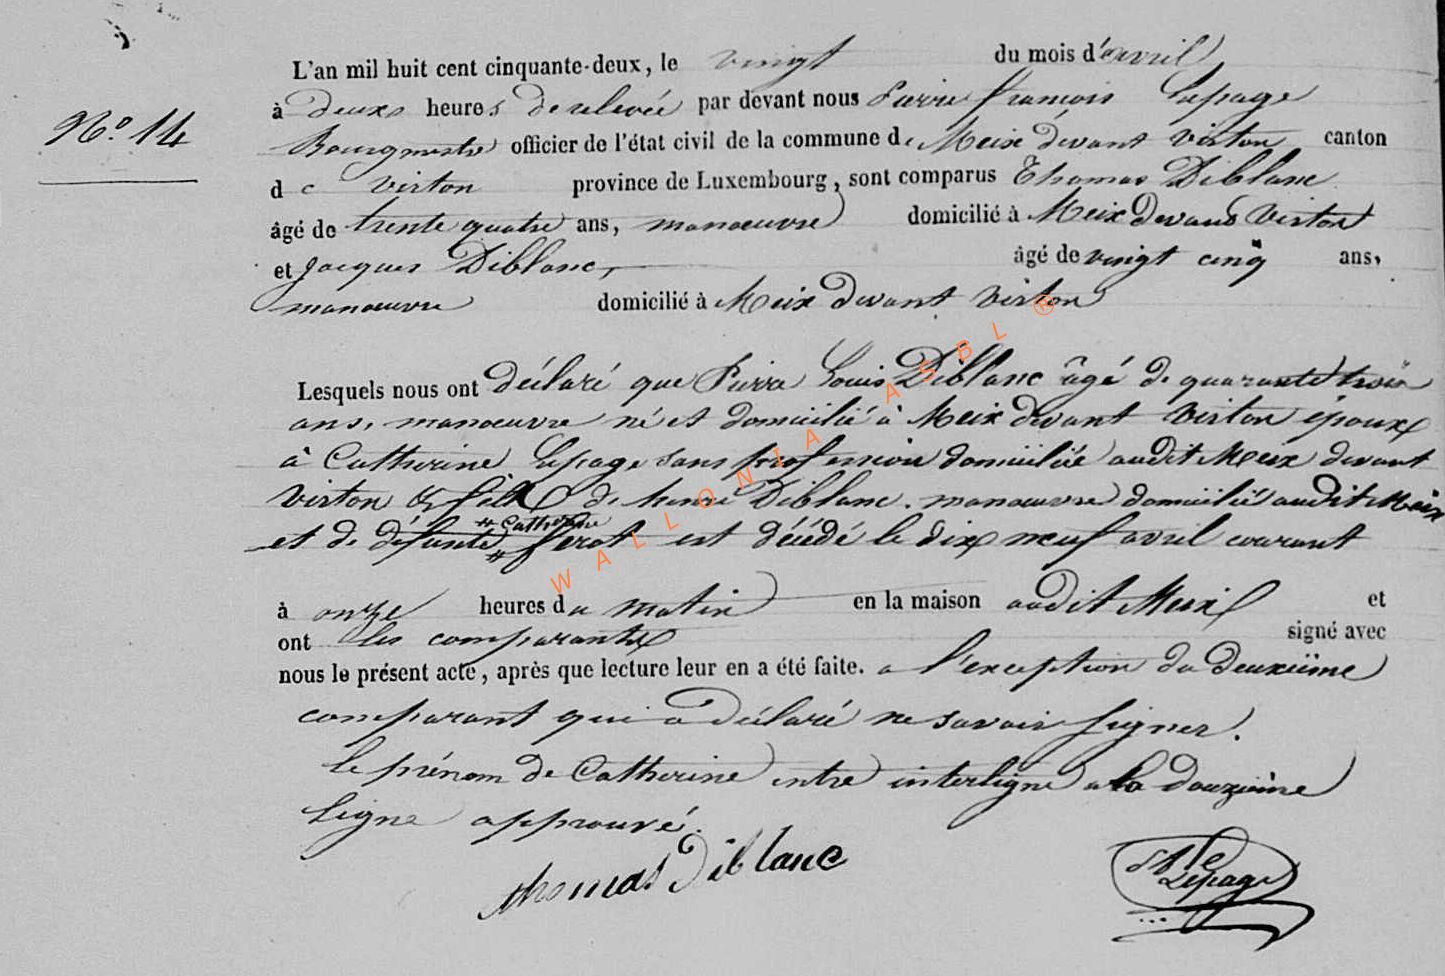 L'an mil huit cent cinquante-deux, le vingt du mois d'avril
à deux heures de relevée par devant nous Pierre françois Lepage
N.o 14
Bourgmestre officier de l'état civil de la commune de Meix devant virton canton
de virton province de Luxembourg, sont comparus Thomas Diblanc
âgé de trente quatre ans, manoeuvre domicilié à Meix devant Virton
et Jacques Diblanc, âgé de vingt cinq ans,
manoeuvre domicilié à Meix devant Virton
Lesquels nous ont déclaré que Pierre Louis Diblanc âgé de quarante trois
ans, manoeuvre né et domicilié à Meix devant Virton époux
à Catherine Lepage sans profession domiciliée audit Meix devant
virton & fils de henri Diblanc, manoeuvre domicilié audit Meix
# Catherine
et de défunte # ferot est décédé le dix neuf avril courant
à onze heures du matin en la maison audit Meix et
ont les comparants signé avec
nous le présent acte, après que lecture leur en a été faite. a l'exception du deuxième
comparant qui a déclaré ne savoir signer.
le prénom de Catherine entre interligne a la douzième
ligne approuvé.
thomas Diblanc
Lepage
WALLONIA ASBL ®